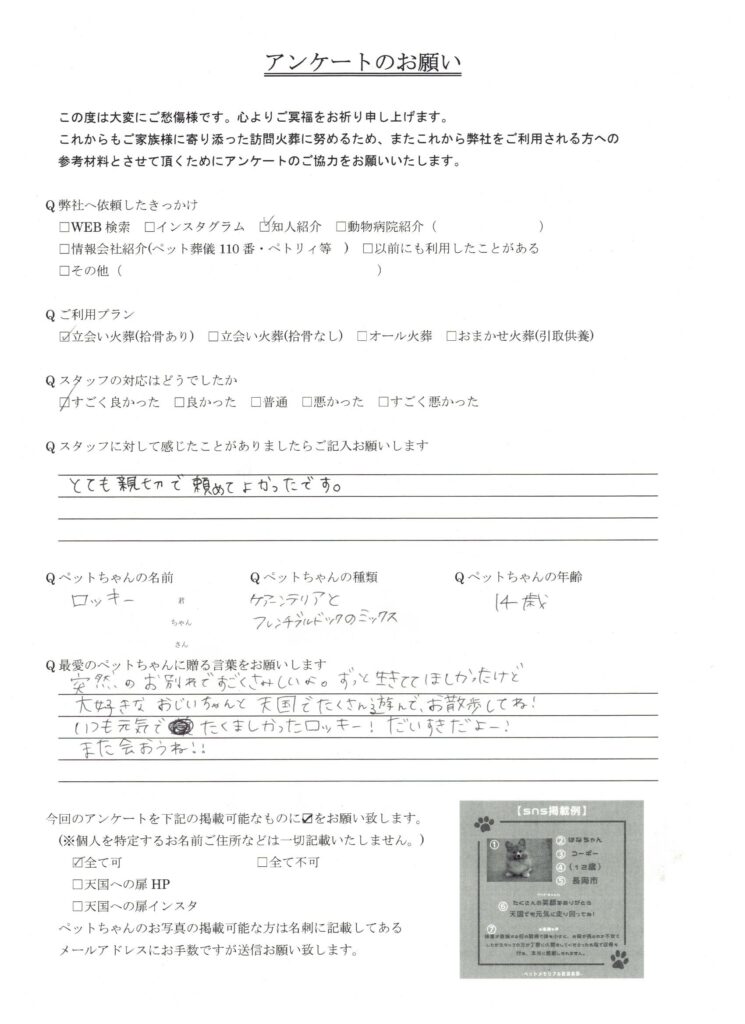 アンケートのお願い
この度は大変にご愁傷様です。心よりご冥福をお祈り申し上げます。
これからもご家族様に寄り添った訪問火葬に努めるため、またこれから弊社をご利用される方への
参考材料とさせて頂くためにアンケートのご協力をお願いいたします。
Q 弊社へ依頼したきっかけ
□WEB 検索 □インスタグラム ☑知人紹介 □動物病院紹介（ ）
□情報会社紹介(ペット葬儀 110 番・ペトリィ等 ) □以前にも利用したことがある
□その他（ ）
Q ご利用プラン
☑立会い火葬(拾骨あり) □立会い火葬(拾骨なし) □オール火葬 □おまかせ火葬(引取供養)
Q スタッフの対応はどうでしたか
☑すごく良かった □良かった □普通 □悪かった □すごく悪かった
Q スタッフに対して感じたことがありましたらご記入お願いします
とても親切で頼めてよかったです。
Q ペットちゃんの名前 Q ペットちゃんの種類 Q ペットちゃんの年齢
ロッキー 君 ケアーンテリアと 14歳
ちゃん フレンチブルドックのミックス
さん
Q 最愛のペットちゃんに贈る言葉をお願いします
突然のお別れですごくさみしいよ。ずっと生きててほしかったけど
大好きなおじいちゃんと天国でたくさん遊んで、お散歩してね!
いつも元気で たくましかったロッキー! だいすきだよー!
また会おうね!!
今回のアンケートを下記の掲載可能なものに☑をお願い致します。
(※個人を特定するお名前ご住所などは一切記載いたしません。)
☑全て可 □全て不可
□天国への扉 HP
□天国への扉インスタ
ペットちゃんのお写真の掲載可能な方は名刺に記載してある
メールアドレスにお手数ですが送信お願い致します。
【sns掲載例】
① ② はなちゃん
③ コーギー
④ (12歳)
⑤ 長岡市
⑥ たくさんの笑顔をありがとう
天国でも元気に走り回ってね!
⑦